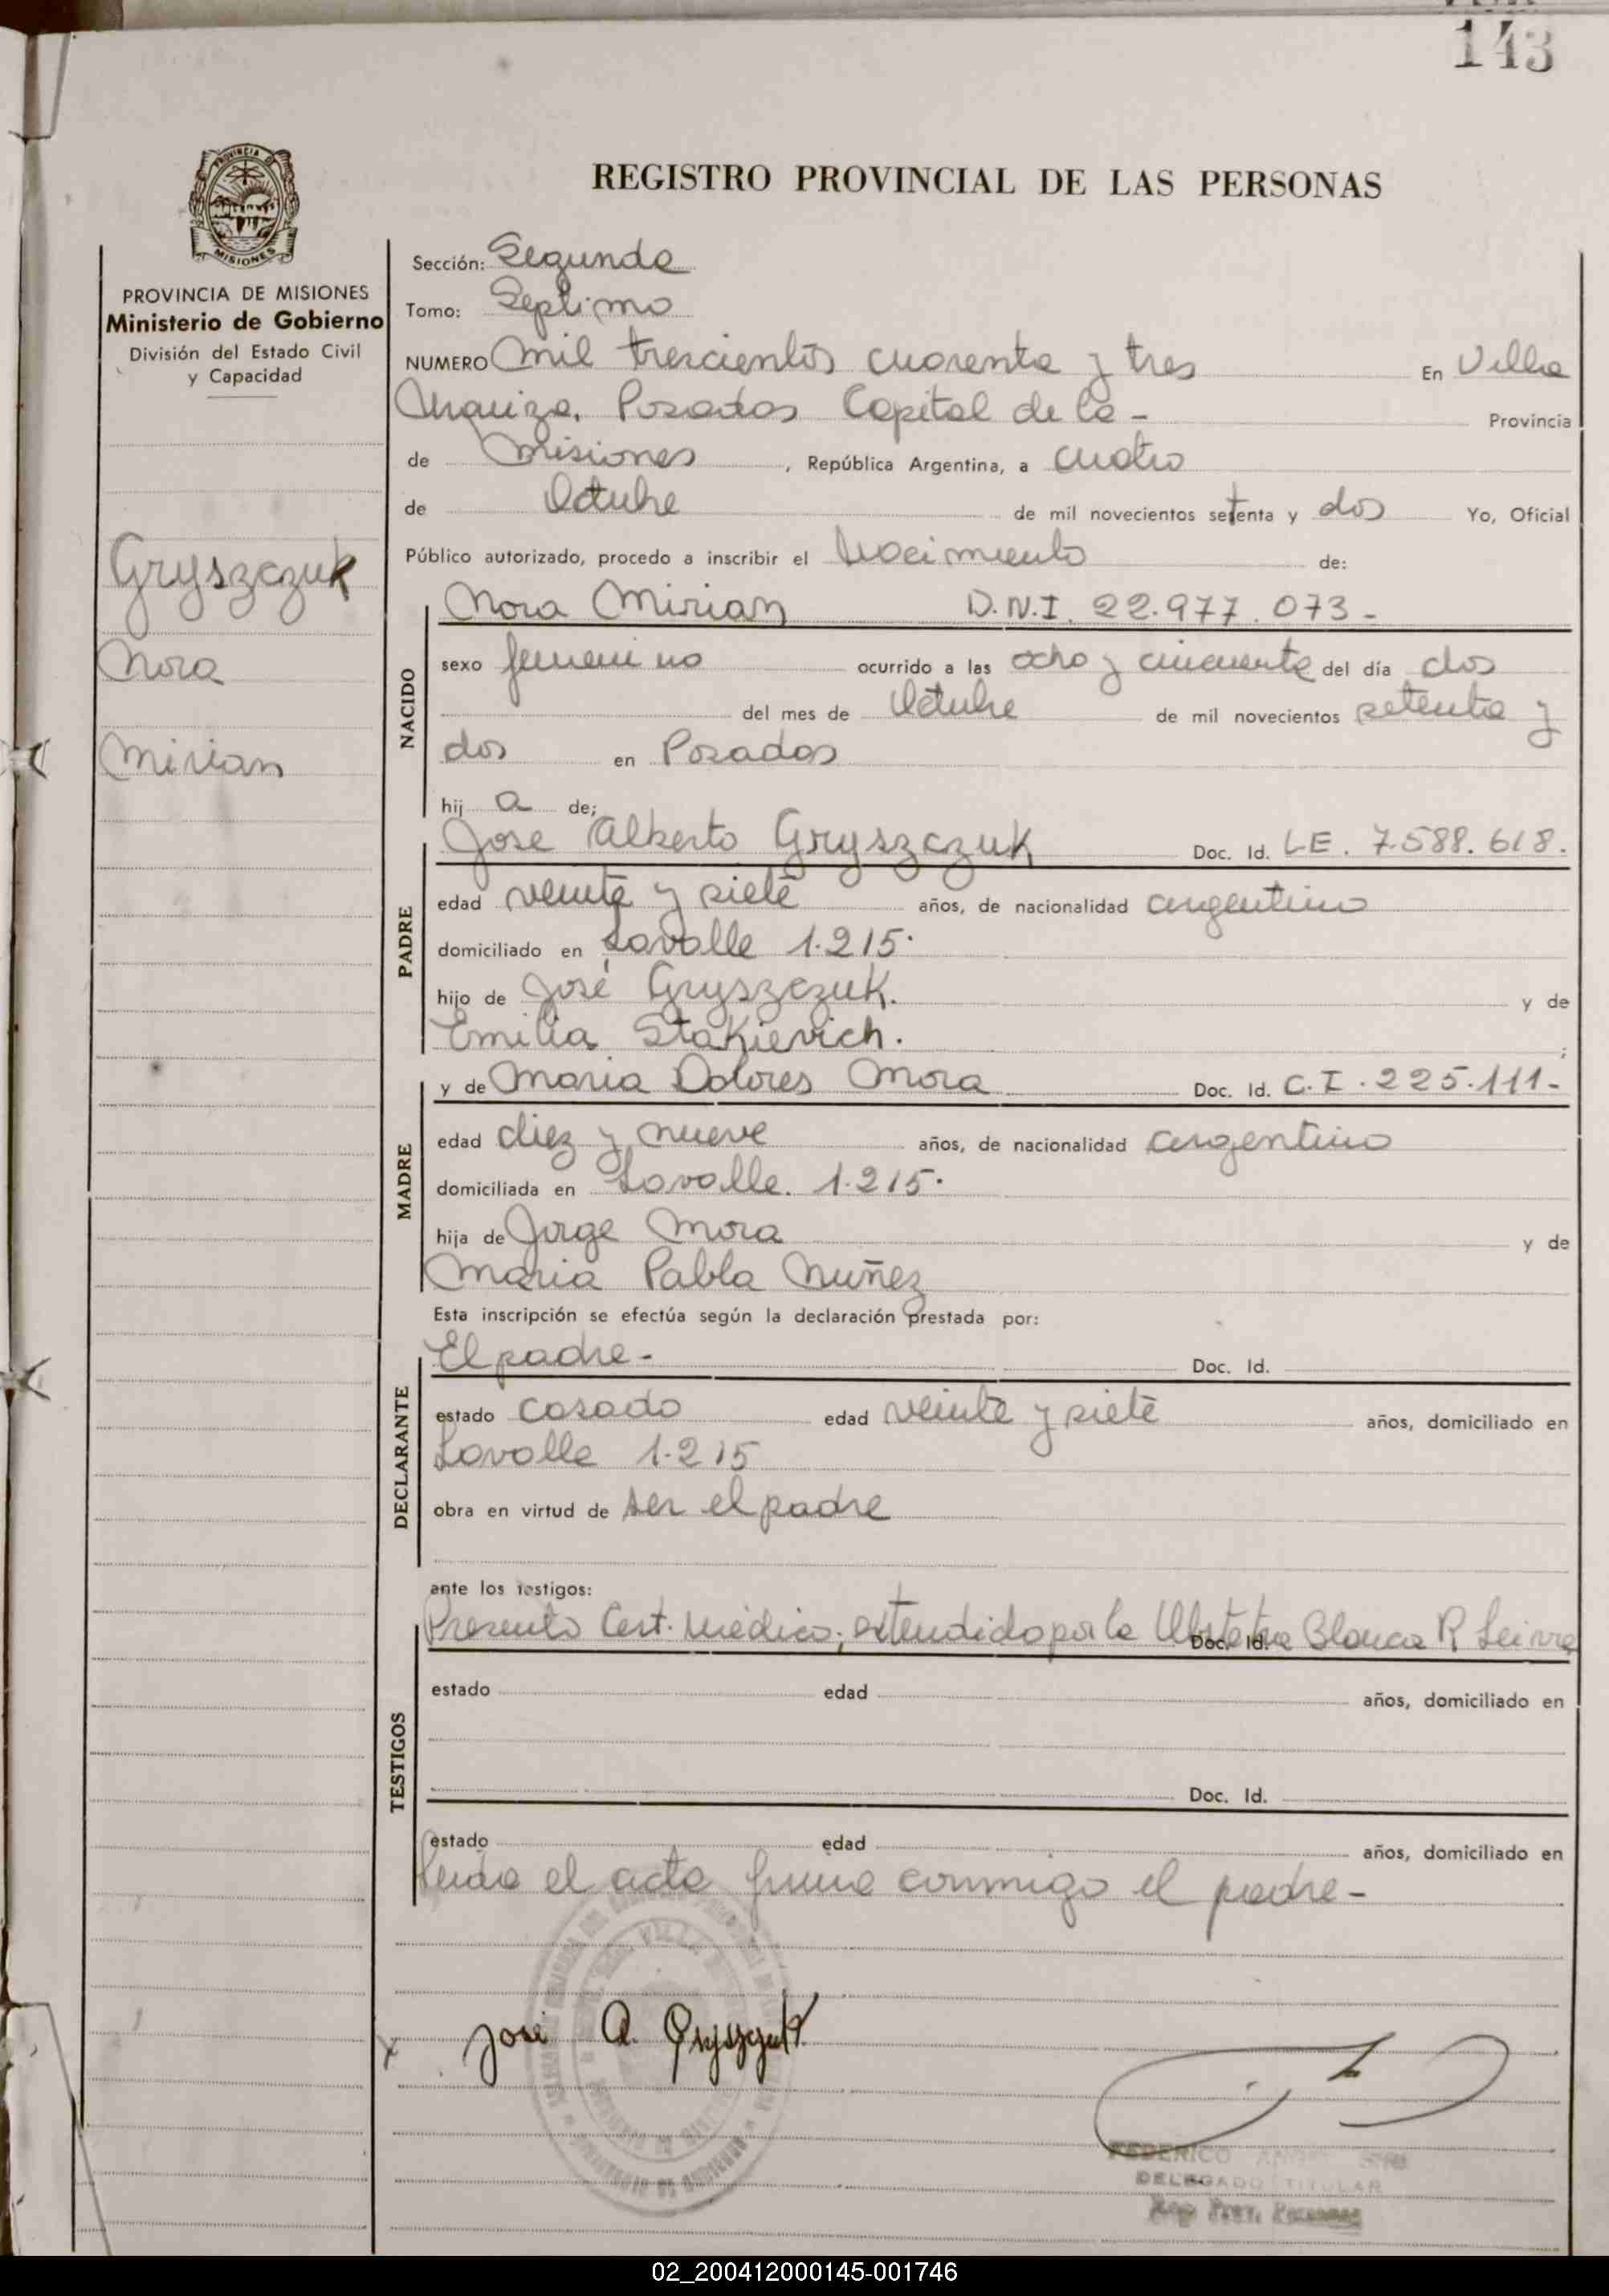 143
REGISTRO PROVINCIAL DE LAS PERSONAS
PROVINCIA DE MISIONES
MISIONES
PROVINCIA DE MISIONES
Ministerio de Gobierno
División del Estado Civil
y Capacidad
Gryszczuk
Nora
Mirian
Sección: Segunda
Tomo: Septimo
NUMERO Mil trescientos cuarenta y tres En Villa
Posadas Capital de la - Provincia
de Misiones, República Argentina, a cuatro
de Octubre de mil novecientos setenta y dos Yo, Oficial
Público autorizado, procedo a inscribir el Nacimiento de:
Nora Mirian D.N.I. 22.977.073-
NACIDO
sexo femenino ocurrido a las ocho y cincuenta del día dos
del mes de Octubre de mil novecientos setenta y
dos en Posadas
hij a de;
Jose Alberto Gryszczuk Doc. Id. LE. 7.588.618.
PADRE
edad veinte y siete años, de nacionalidad argentino
domiciliado en Lavalle 1.215.
hijo de José Gryszczuk. y de
Emilia Stakievich. ;
y de Maria Dolores Mora Doc. Id. C.I. 225.111-
MADRE
edad diez y nueve años, de nacionalidad argentino
domiciliada en Lavalle. 1.215.
hija de Jorge Mora y de
Maria Pabla Nuñez
Esta inscripción se efectúa según la declaración prestada por:
El padre- Doc. Id.
DECLARANTE
estado casado edad veinte y siete años, domiciliado en
Lavalle 1.215
obra en virtud de ser el padre
ante los testigos:
Presento Cert. Médico; extendido por la Obstetra Blanca R Leiva
Doc. Id.
TESTIGOS
estado edad años, domiciliado en
Doc. Id.
estado edad años, domiciliado en
Leida el acta firma conmigo el padre-
x José A. Gryszczuk
FEDERICO
DELEGADO TITULAR
Reg. Prov. Personas
02_200412000145-001746